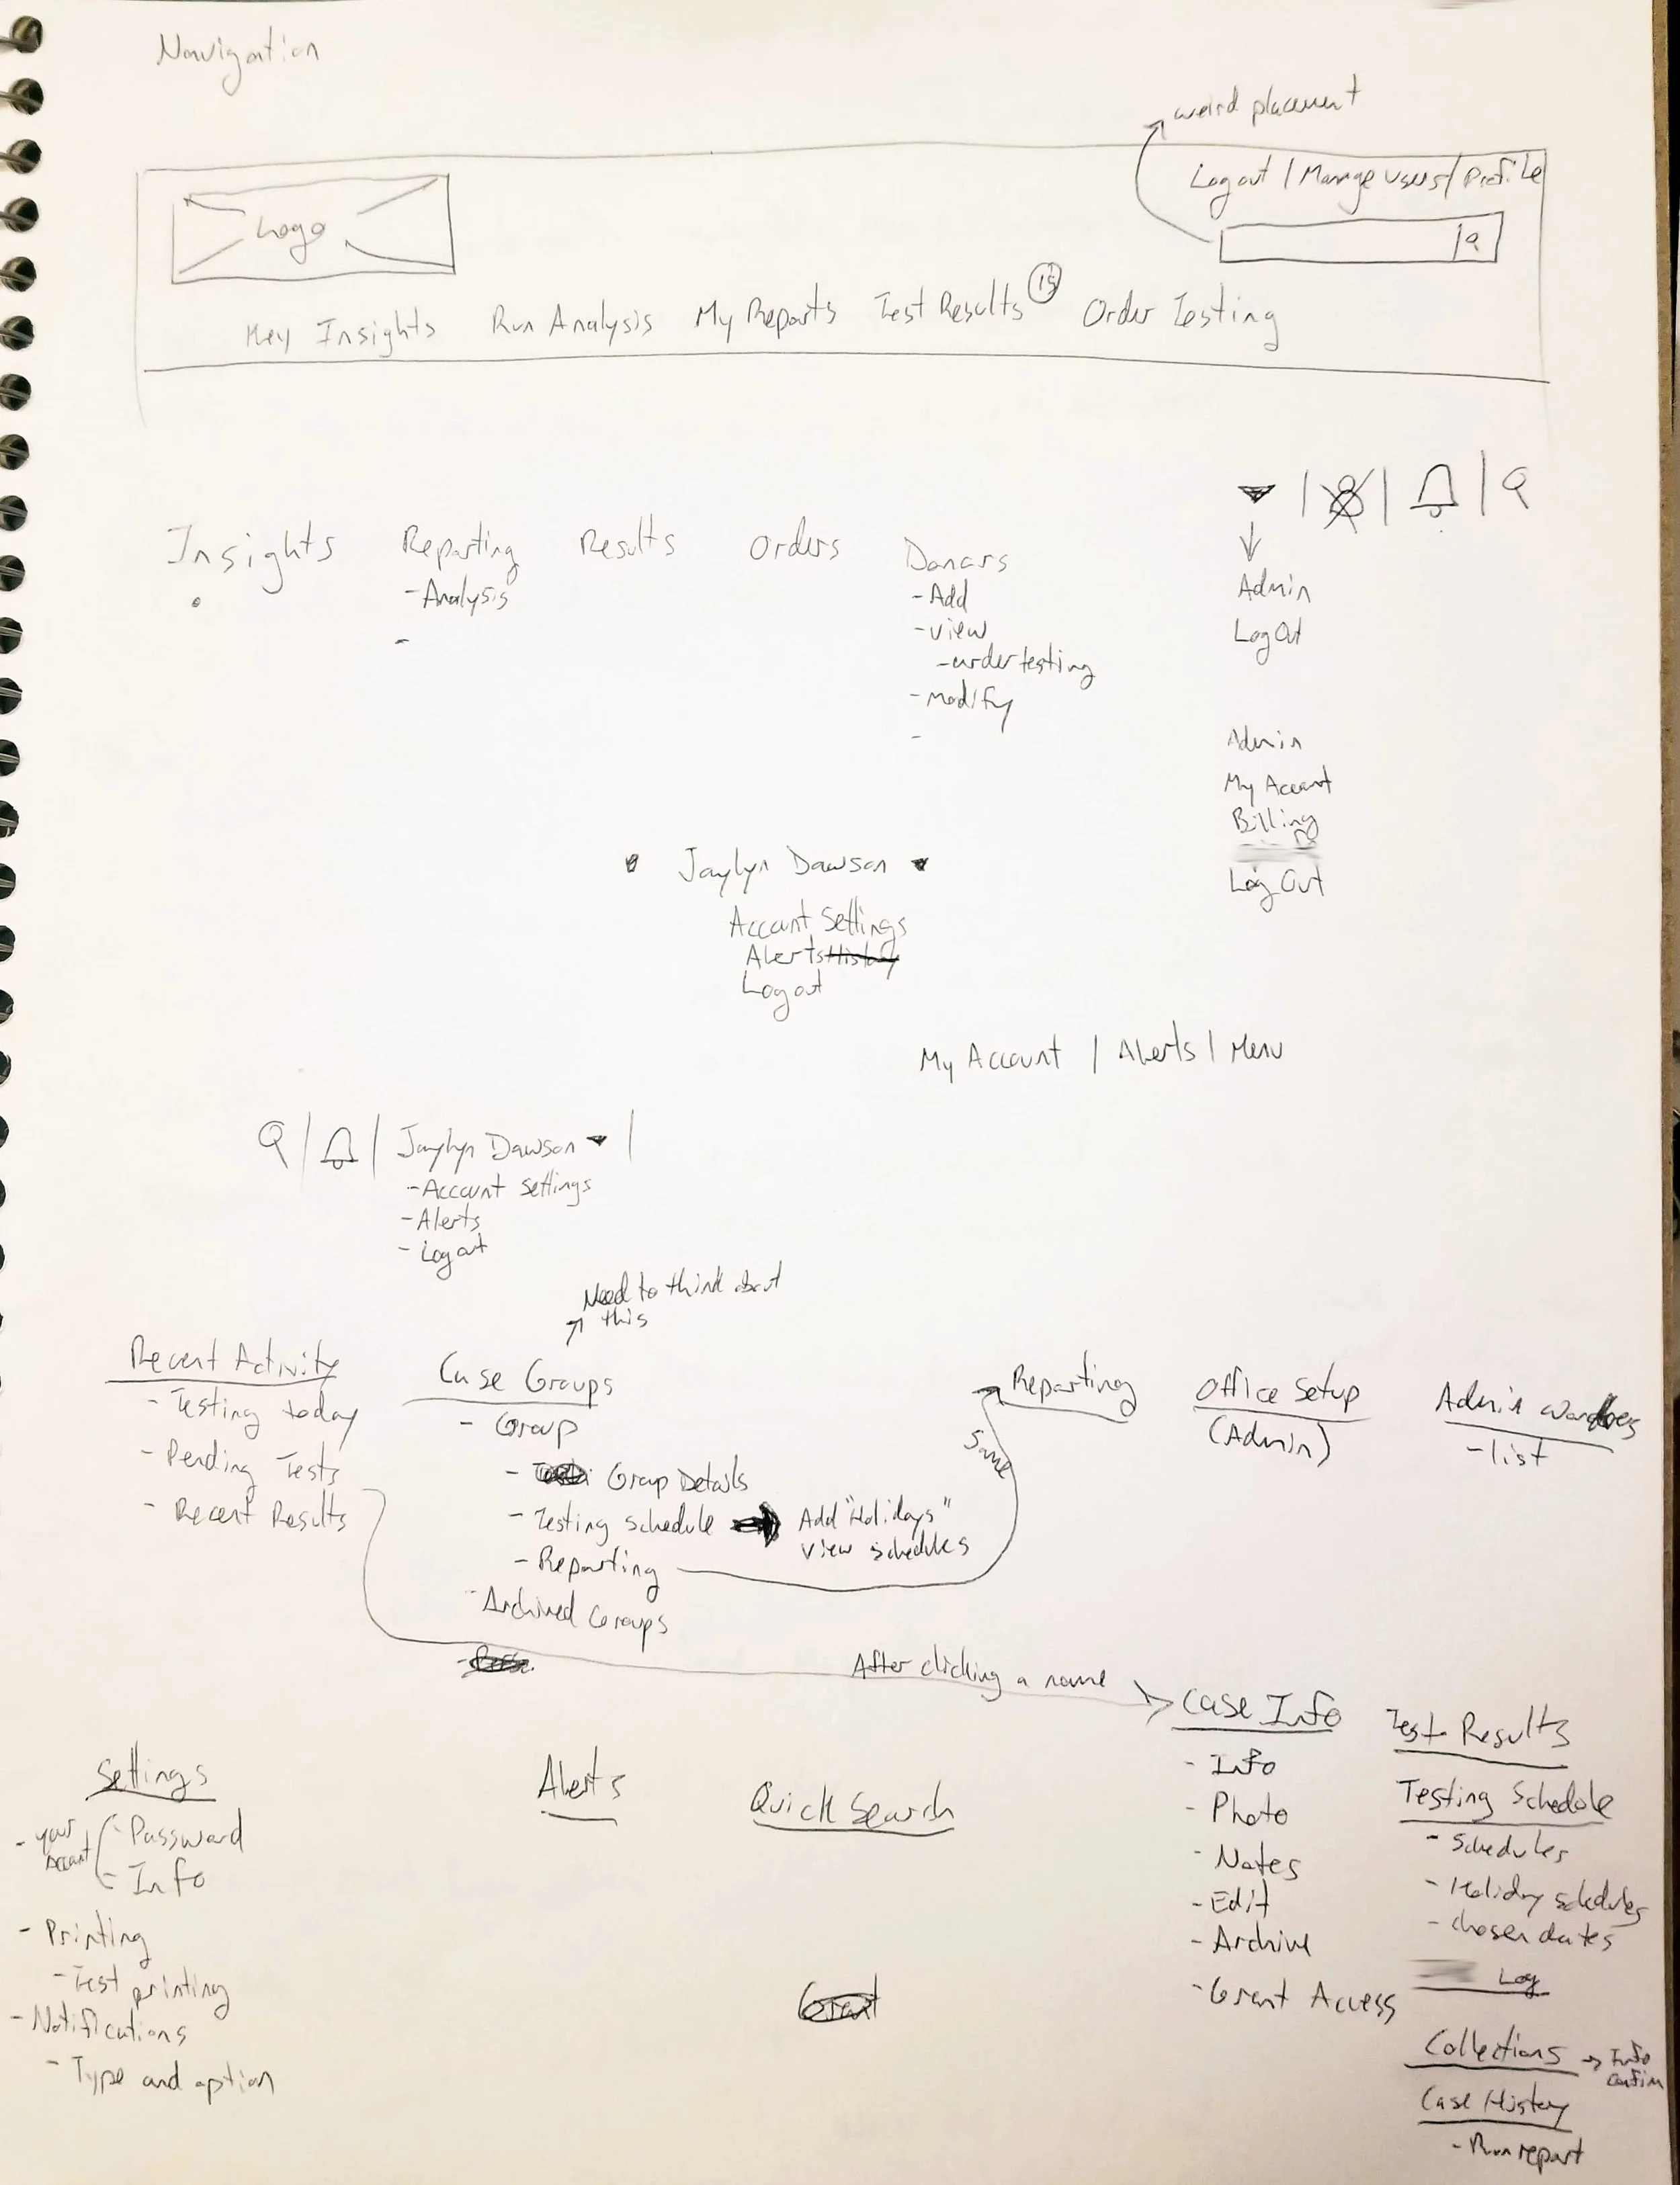 Navigation
weird placement
Logout | Manage Users | Profile
Logo
Key Insights Run Analysis My Reports Test Results 15 Order Testing
Insights Reporting Results Orders Donors
- Analysis
-
- Add
- view
- order testing
- modify
-
Admin
Log Out
Admin
My Account
Billing
Log Out
Jaylyn Dawson
Account Settings
Alerts History
Logout
My Account | Alerts | Menu
Jaylyn Dawson
- Account settings
- Alerts
- Logout
Need to think about
this
Recent Activity
- Testing today
- Pending Tests
- Recent Results
Case Groups
- Group
- Group Details
- Testing schedule
Add "Holidays"
View schedules
- Reporting
- Archived Groups
Same
Reporting
Office Setup
(Admin)
Admin
- list
After clicking a name
Case Info
- Info
- Photo
- Notes
- Edit
- Archive
- Grant Access
Test Results
Testing Schedule
- Schedules
- Holiday schedules
- chosen dates
Log
Collections → Info
Confirm
Case History
- Run report
Settings
- your
Account
- Password
- Info
- Printing
- Test printing
- Notifications
- Type and option
Alerts
Quick Search
Grant